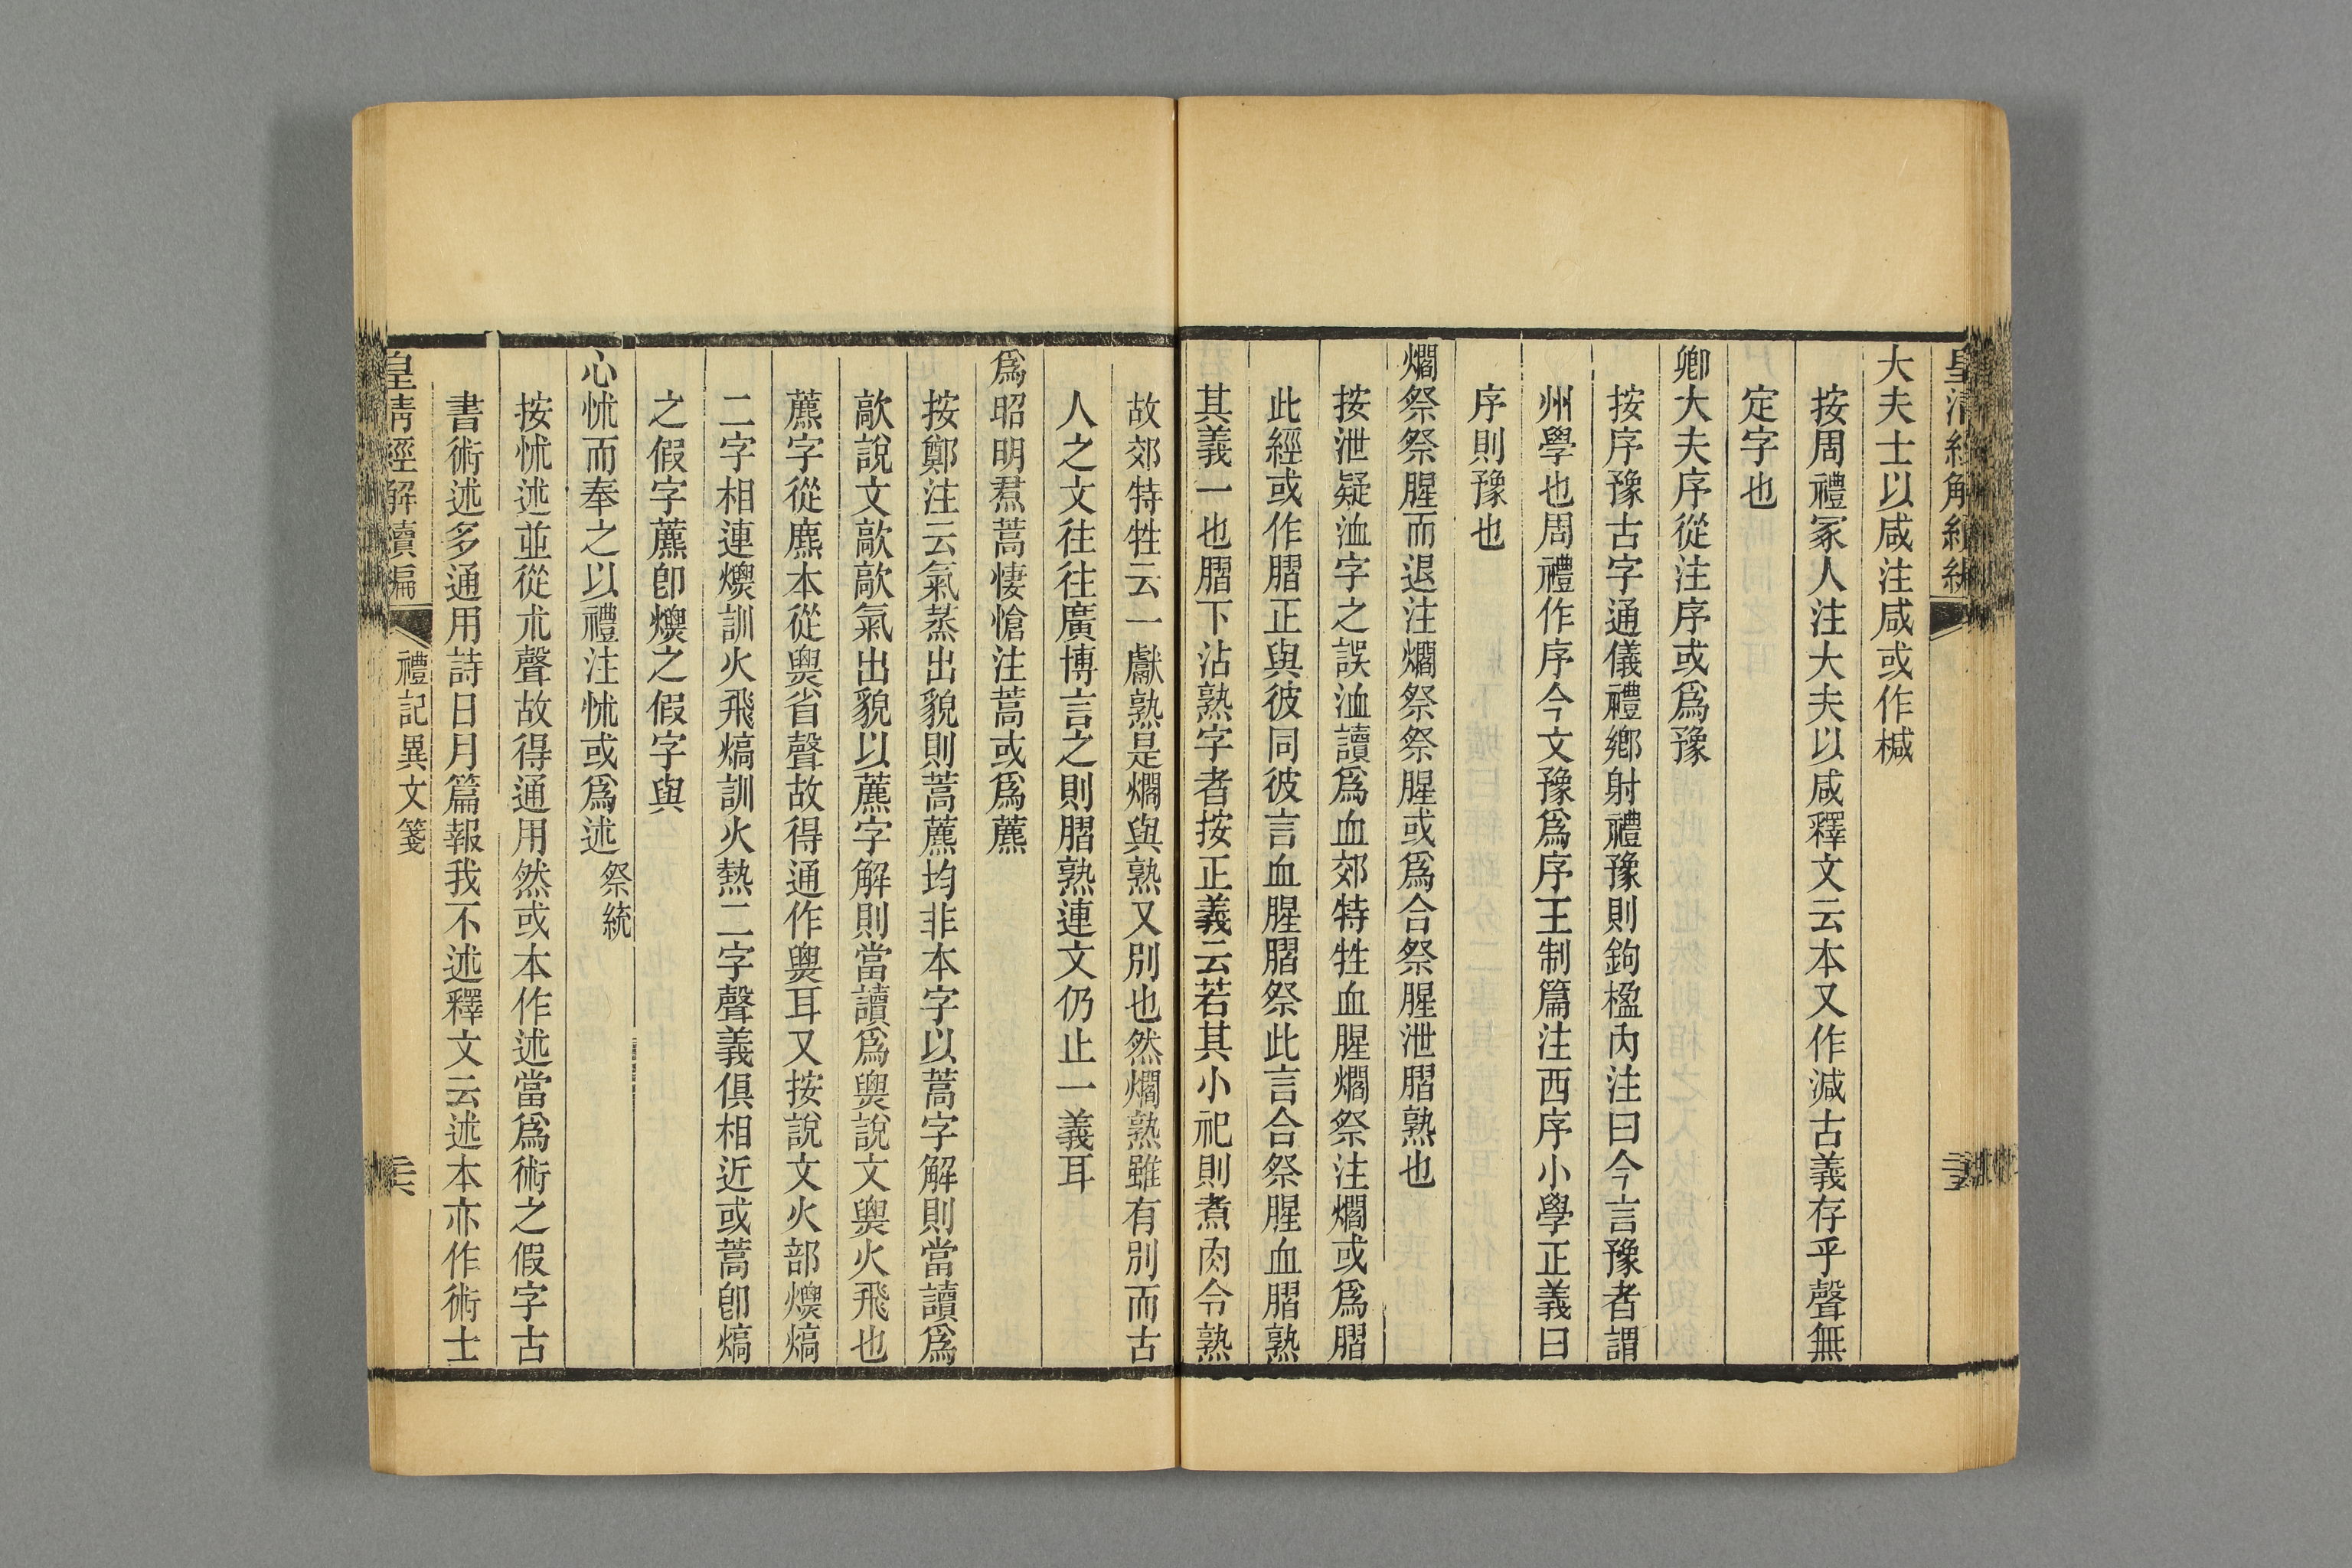 大夫士以咸注咸或作椷
按周禮冢人注大夫以咸釋文云本又作減古義存乎聲無
定字也
卿大夫序從注序或爲豫
按序豫古字通儀禮鄉射禮豫則鉤楹內注曰今言豫者謂
州學也周禮作序今文豫爲序王制篇注西序小學正義曰
序則豫也
爓祭祭腥而退注爓祭祭腥或爲合祭腥泄膶熟也
按泄疑洫字之誤洫讀爲血郊特牲血腥爓祭注爓或爲膶
此經或作膶正與彼同彼言血腥膶祭此言合祭腥血膶熟
其義一也膶下沾熟字者按正義云若其小祀則煮肉令熟
故郊特牲云一獻熟是爓與熟又別也然爓熟雖有別而古
人之文往往廣博言之則膶熟連文仍止一義耳
爲昭明焄蒿悽愴注蒿或爲藨
按鄭注云氣蒸出貌則蒿藨均非本字以蒿字解則當讀爲
歊說文歊歊氣出貌以藨字解則當讀爲㷠說文㷠火飛也
藨字從麃本從㷠省聲故得通作㷠耳又按說文火部熛熇
二字相連熛訓火飛熇訓火熱二字聲義俱相近或蒿卽熇
之假字藨卽熛之假字與
心怵而奉之以禮注怵或爲述 祭統
按怵述並從朮聲故得通用然或本作述當爲術之假字古
書術述多通用詩日月篇報我不述釋文云述本亦作術士
皇清經解續編 禮記異文箋